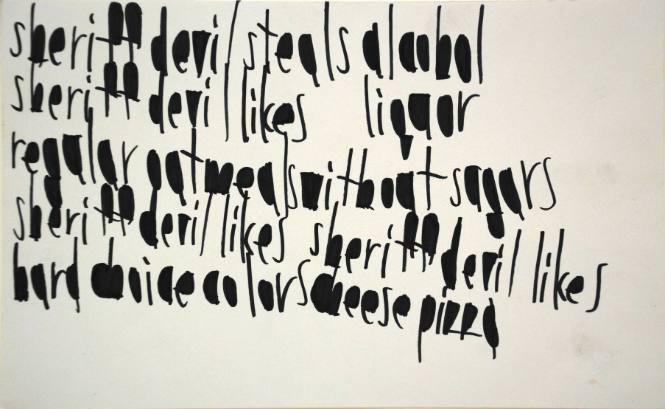 sheriff devil steals alcohol
sheriff devil likes liqour
regular oatmeals without sugars
sheriff devil likes sheriff devil likes
hard choice colors cheese pizza